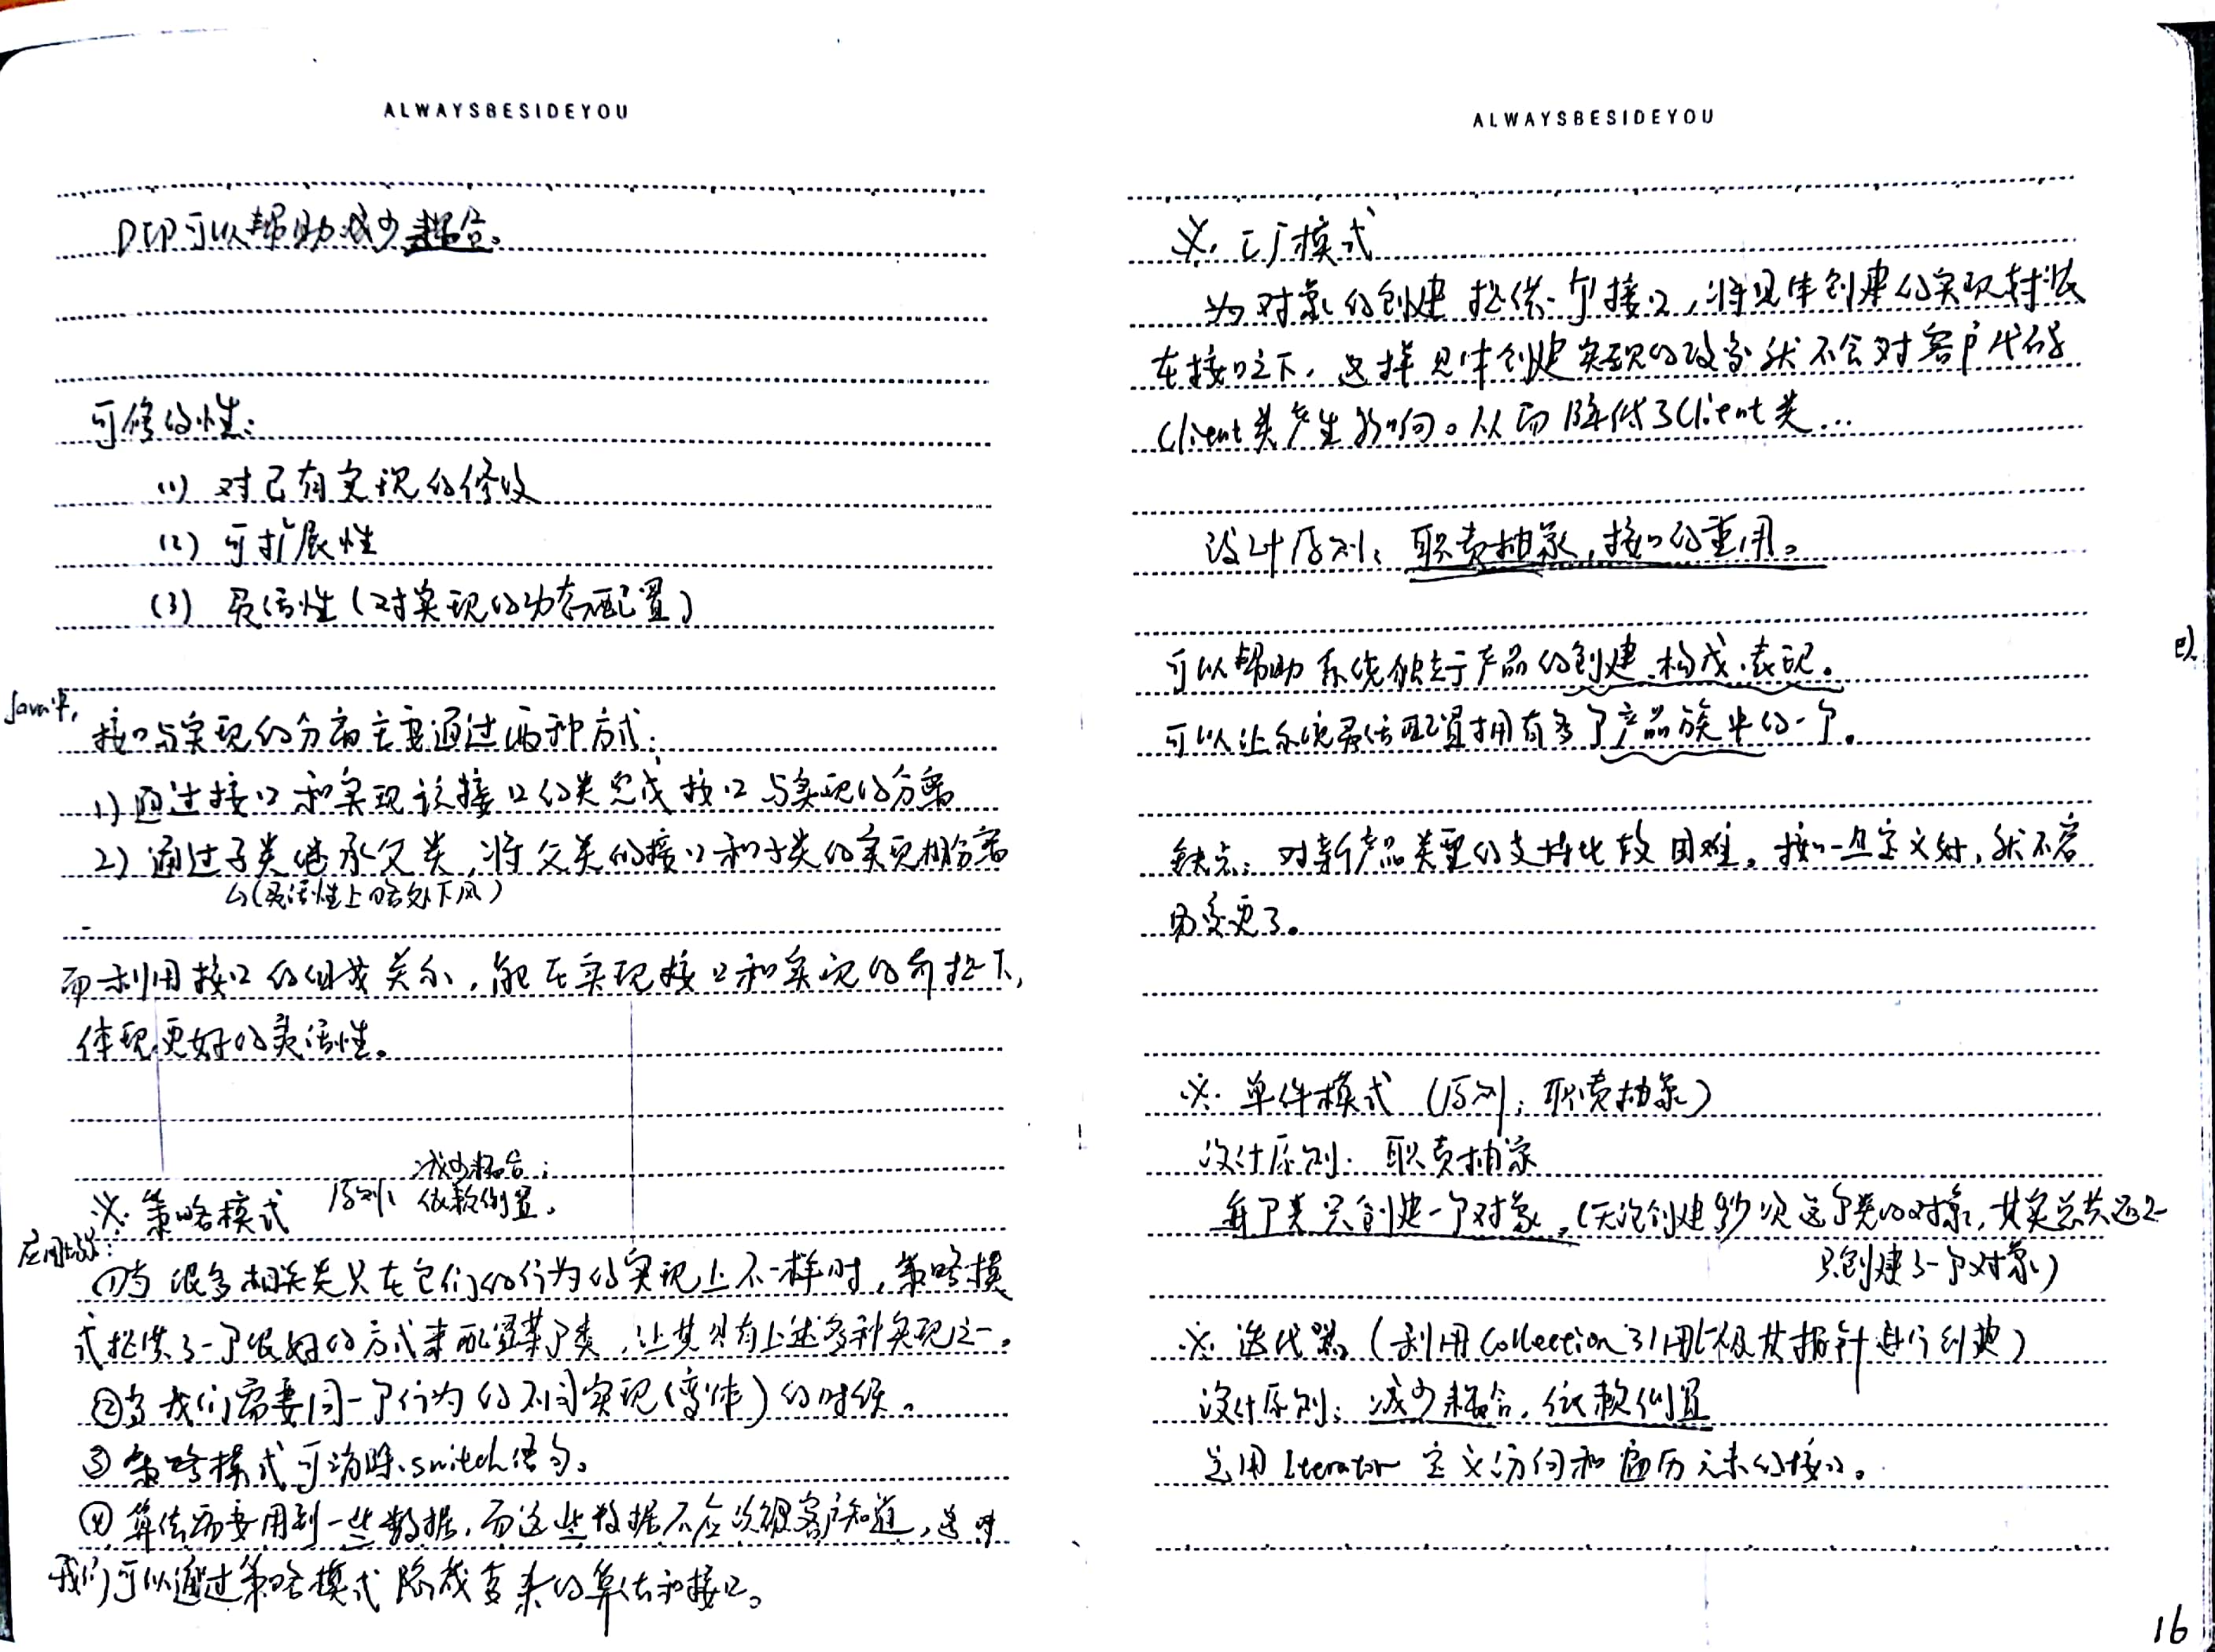 ALWAYSBESIDEYOU
DIP可以帮助减少耦合。
可修改性：
(1) 对已有实现的修改
(2) 可扩展性
(3) 灵活性（对实现的动态配置）
Java中，
接口与实现的分离主要通过两种方式：
1) 通过接口和实现该接口的类完成接口与实现的分离
2) 通过子类继承父类，将父类的接口和子类的实现相分离
↳(灵活性上略处下风)
而利用接口的组成关系，能在实现接口和实现的前提下，
体现更好的灵活性。
※. 策略模式 原则： 减少耦合；
依赖倒置。
应用场景：
①当很多相关类只在它们的行为的实现上不一样时，策略模
式提供了一个很好的方式来配置某个类，让其具有上述多种实现之一。
②当我们需要同一个行为的不同实现(变体)的时候。
③策略模式可消除switch语句。
④算法需要用到一些数据，而这些数据不应该被客户知道，这时
我们可以通过策略模式隐藏复杂的算法和接口。
ALWAYSBESIDEYOU
※. 工厂模式
为对象的创建提供一个接口，将具体创建的实现封装
在接口之下，这样具体创建实现的改变就不会对客户代码
Client类产生影响。从而降低了Client类...
设计原则：职责抽象，接口的重用。
可以帮助系统独立于产品的创建、构成、表现。
可以让系统灵活配置拥有多个产品族中的一个。
缺点：对新产品类型的支持比较困难。接口一旦定义好，就不容
易变更了。
※. 单件模式 (原则：职责抽象)
设计原则：职责抽象
每个类只创建一个对象。(无论创建多少次这个类的对象，其实总共还是
只创建了一个对象)
※. 迭代器 (利用Collection引用以及其指针进行封装)
设计原则：减少耦合，依赖倒置
运用Iterator 定义访问和遍历元素的接口。
16